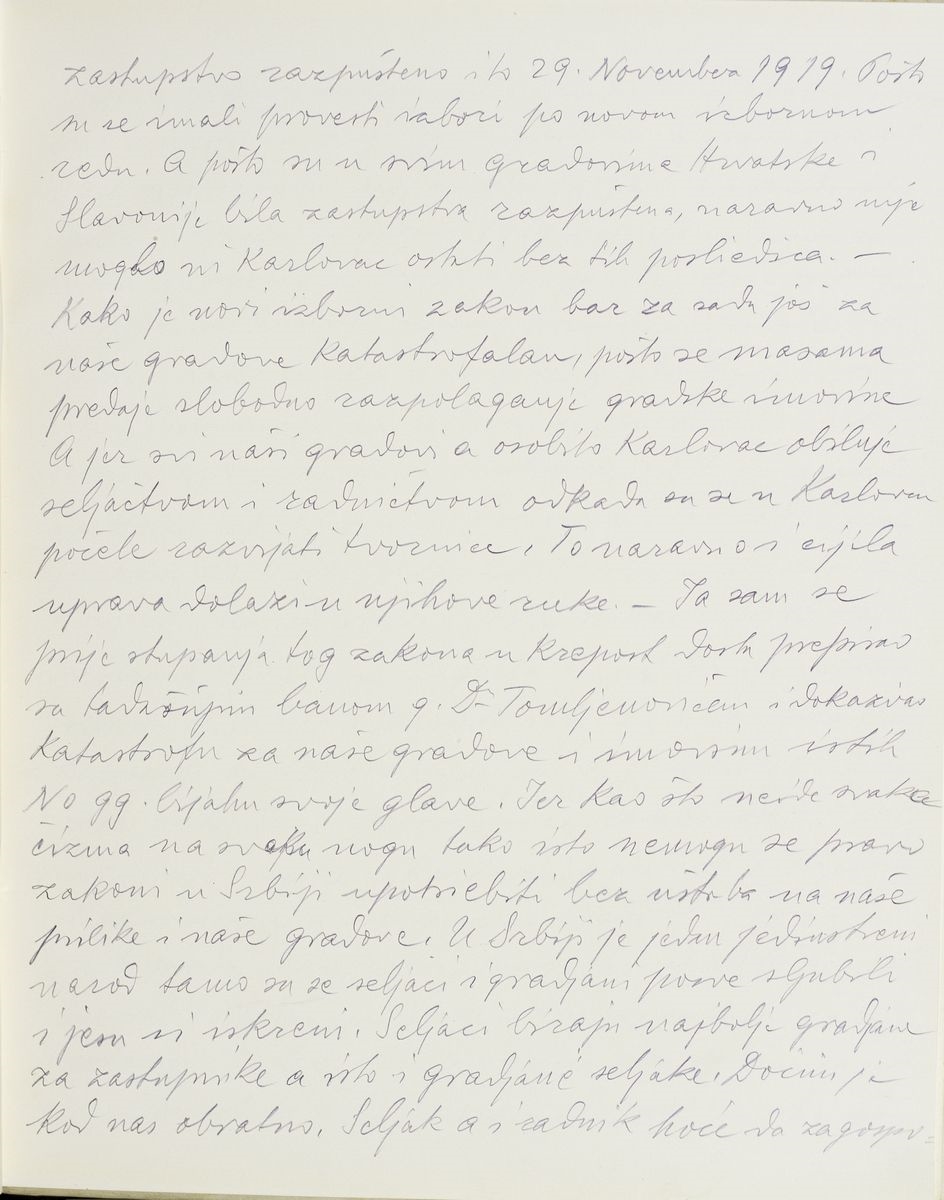 zastupstvo razpušteno i to 29. Novembera 1919. Pošto
su se imali provesti izbori po novom izbornom
redu. A pošto su u svim gradovima Hrvatske i
Slavonije bila zastupstva razpuštena, naravno nije
moglo ni Karlovac ostati bez tih posliedica. —
Kako je novi izborni zakon bar za sada još za
naše gradove katastrofalan, pošto se masama
predaje slobodno razpolaganje gradske imovine
A jer svi naši gradovi a osobito Karlovac obiluje
seljačtvom i radničtvom odkada su se u Karlovcu
počele razvijati tvornice. To naravno i cijela
uprava dolazi u njihove ruke. — Ja sam se
prije stupanja tog zakona u krepost dosta prepirao
sa tadašnjim banom g. Dr Tomljenovićem i dokazivao
Katastrofu za naše gradove i imovinu istih
No gg. bijahu svoje glave. Jer kao što neide svaka
čizma na svaku nogu tako isto nemogu se pravo
zakoni u Srbiji upotriebiti bez uštrba na naše
prilike i naše gradove. U Srbiji je jedan jedinstveni
narod tamo su se seljaci i gradjani posve sljubili
i jesu si iskreni. Seljaci biraju najbolje gradjane
za zastupnike a isto i gradjane seljake. Dočim je
kod nas obratno. Seljak a i radnik hoće da zagospo=